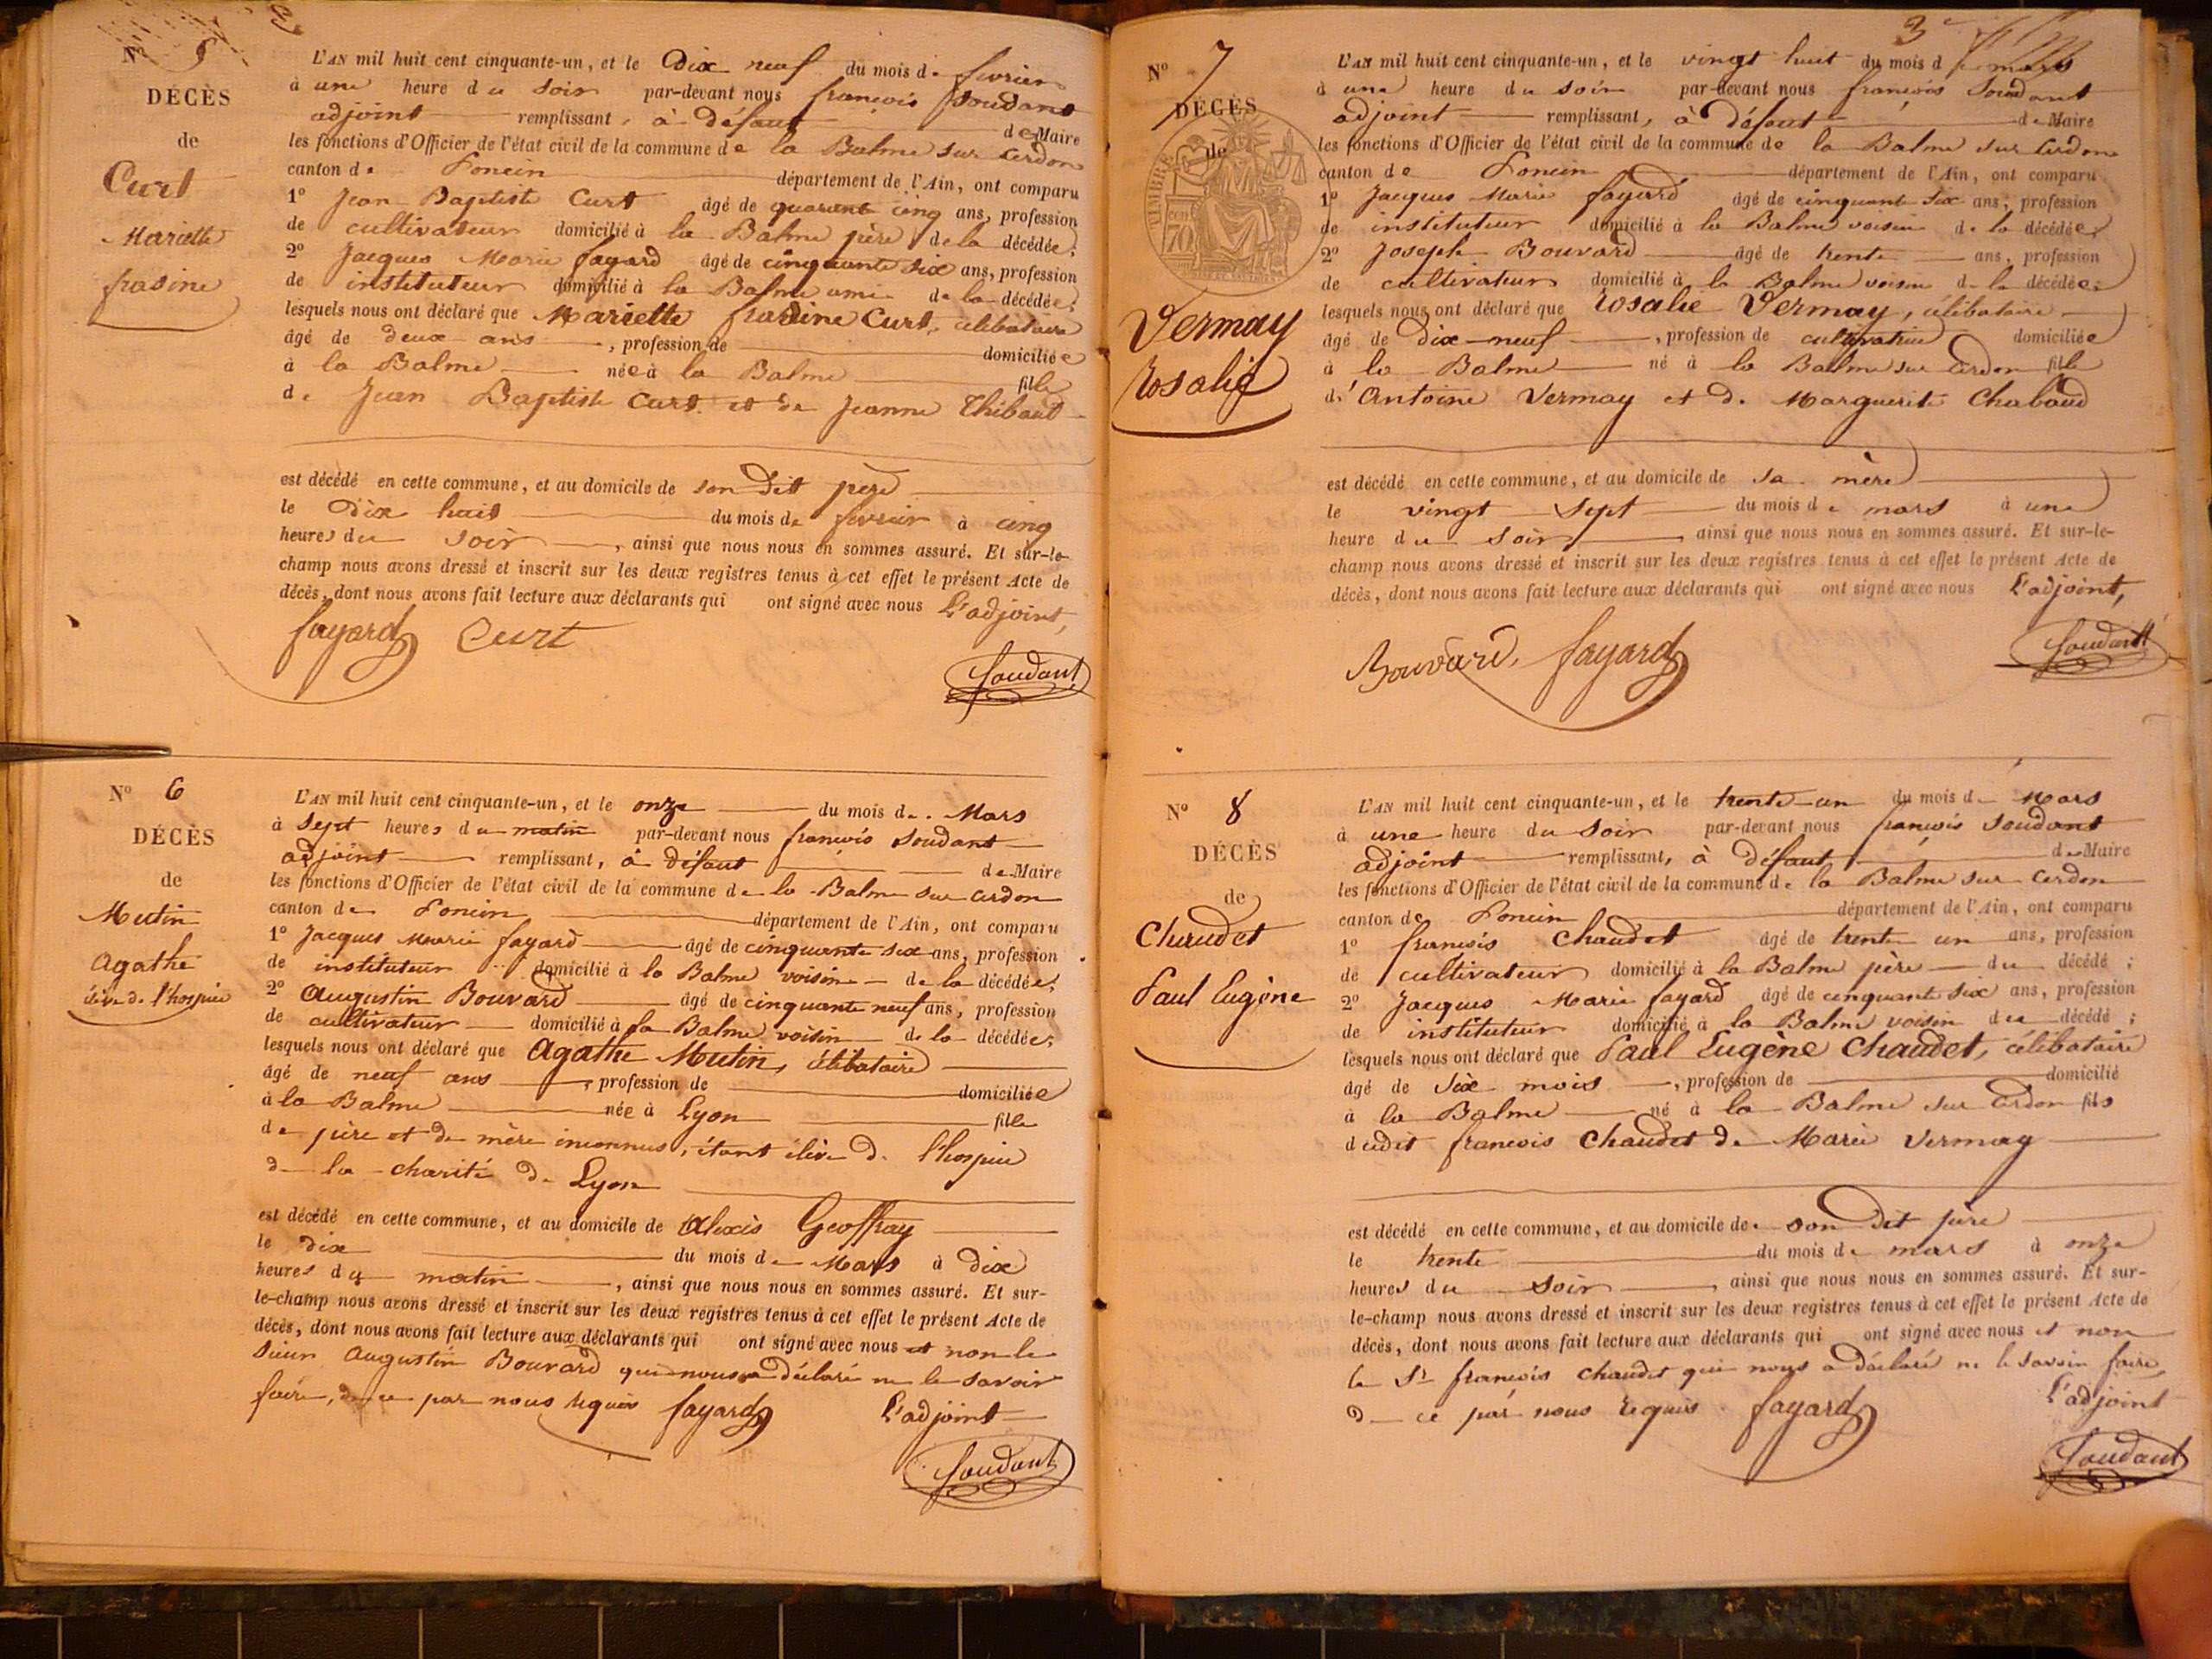 Nº 5
DÉCÈS
de
Curt
Mariette
frasine
L'AN mil huit cent cinquante-un, et le Dix neuf du mois de fevrier
à une heure du soir par-devant nous françois Soudant
adjoint remplissant, à défaut de Maire
les fonctions d'Officier de l'état civil de la commune de la Balme sur Cerdon
canton de Poncin département de l'Ain, ont comparu
1º Jean Baptiste Curt âgé de quarante cinq ans, profession
de cultivateur domicilié à la Balme père de la décédée;
2º Jacques Marie fayard âgé de cinquante six ans, profession
de instituteur domicilié à la Balme ami de la décédée;
lesquels nous ont déclaré que Mariette frasine Curt, célibataire
âgé de deux ans , profession de domiciliée
à la Balme née à la Balme fille
de Jean Baptiste Curt et de Jeanne Thibaut
est décédé en cette commune, et au domicile de son dit père
le Dix huit du mois de fevrier à cinq
heures du soir , ainsi que nous nous en sommes assuré. Et sur-le-
champ nous avons dressé et inscrit sur les deux registres tenus à cet effet le présent Acte de
décès, dont nous avons fait lecture aux déclarants qui ont signé avec nous L'adjoint,
fayard Curt
Soudant
Nº 6
DÉCÈS
de
Mutin
Agathe
élève de l'hospice
L'AN mil huit cent cinquante-un, et le onze du mois de Mars
à sept heures du matin par-devant nous françois Soudant
adjoint remplissant, à défaut de Maire
les fonctions d'Officier de l'état civil de la commune de la Balme sur Cerdon
canton de Poncin département de l'Ain, ont comparu
1º Jacques Marie fayard âgé de cinquante six ans, profession
de instituteur domicilié à la Balme voisin de la décédée;
2º Augustin Bouvard âgé de cinquante neuf ans, profession
de cultivateur domicilié à la Balme voisin de la décédée;
lesquels nous ont déclaré que Agathe Mutin, célibataire
âgé de neuf ans , profession de domiciliée
à la Balme née à Lyon fille
de père et de mère inconnus, étant élève de l'hospice
de la charité de Lyon
est décédé en cette commune, et au domicile de Alexis Geoffray
le dix du mois de Mars à dix
heures du matin , ainsi que nous nous en sommes assuré. Et sur-
le-champ nous avons dressé et inscrit sur les deux registres tenus à cet effet le présent Acte de
décès, dont nous avons fait lecture aux déclarants qui ont signé avec nous et non le
sieur Augustin Bouvard qui nous a déclaré ne le savoir
faire, de ce par nous requis fayard L'adjoint
Soudant
3e
Nº 7
DÉCÈS
de
TIMBRE
70
Vermay
Rosalie
L'AN mil huit cent cinquante-un, et le vingt huit du mois de mars
à une heure du soir par-devant nous françois Soudant
adjoint remplissant, à défaut de Maire
les fonctions d'Officier de l'état civil de la commune de la Balme sur Cerdon
canton de Poncin département de l'Ain, ont comparu
1º Jacques Marie fayard âgé de cinquante six ans, profession
de instituteur domicilié à la Balme voisin de la décédée;
2º Joseph Bouvard âgé de trente ans, profession
de cultivateur domicilié à la Balme voisin de la décédée;
lesquels nous ont déclaré que Rosalie Vermay, célibataire
âgé de dix-neuf , profession de cultivatrice domiciliée
à la Balme né à la Balme sur Cerdon fille
d'Antoine Vermay et de Marguerite Chabaud
est décédé en cette commune, et au domicile de sa mère
le vingt sept du mois de mars à une
heure du soir , ainsi que nous nous en sommes assuré. Et sur-le-
champ nous avons dressé et inscrit sur les deux registres tenus à cet effet le présent Acte de
décès, dont nous avons fait lecture aux déclarants qui ont signé avec nous L'adjoint,
Bouvard, fayard
Soudant
Nº 8
DÉCÈS
de
Chaudet
Paul Eugène
L'AN mil huit cent cinquante-un, et le trente-un du mois de Mars
à une heure du soir par-devant nous françois Soudant
adjoint remplissant, à défaut de Maire
les fonctions d'Officier de l'état civil de la commune de la Balme sur Cerdon
canton de Poncin département de l'Ain, ont comparu
1º françois Chaudet âgé de trente un ans, profession
de cultivateur domicilié à la Balme père du décédé;
2º Jacques Marie fayard âgé de cinquante six ans, profession
de instituteur domicilié à la Balme voisin du décédé;
lesquels nous ont déclaré que Paul Eugène Chaudet, célibataire
âgé de six mois , profession de domicilié
à la Balme né à la Balme sur Cerdon fils
dudit françois Chaudet de Marie Vermay
est décédé en cette commune, et au domicile de son dit père
le trente du mois de mars à onze
heures du soir , ainsi que nous nous en sommes assuré. Et sur-
le-champ nous avons dressé et inscrit sur les deux registres tenus à cet effet le présent Acte de
décès, dont nous avons fait lecture aux déclarants qui ont signé avec nous et non
le Sr françois Chaudet qui nous a déclaré ne le savoir faire,
de ce par nous requis fayard L'adjoint
Soudant